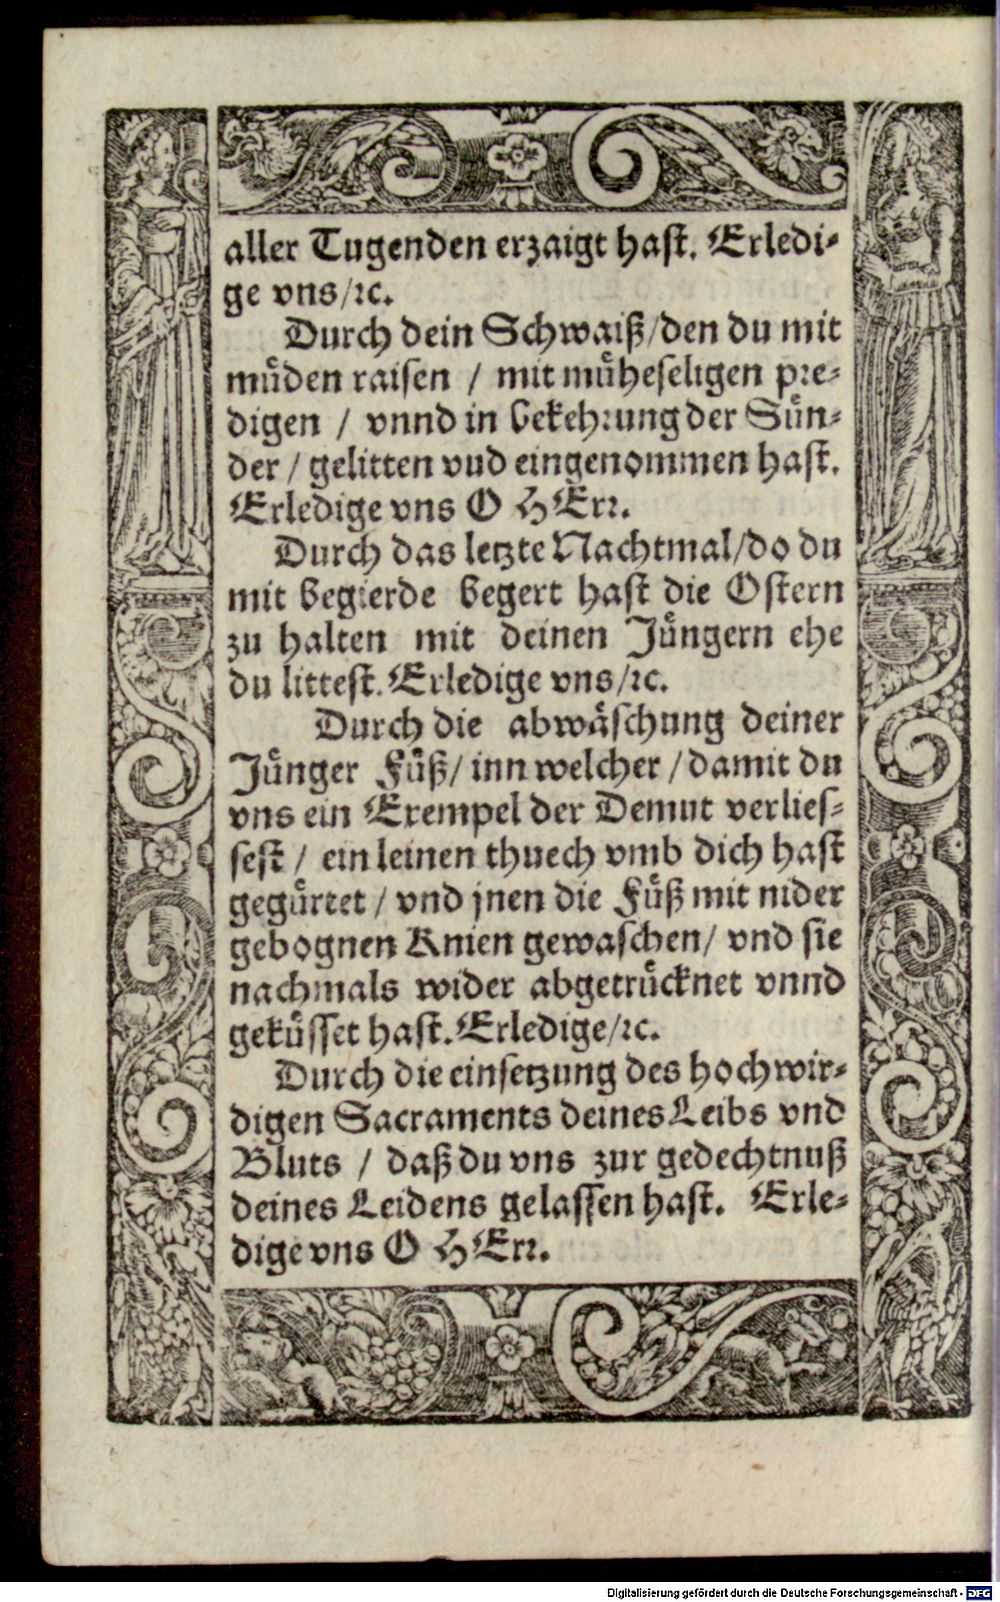 aller Tugenden erzaigt hast. Erledi-
ge vns/ꝛc.
Durch dein Schwaiß/den du mit
müden raisen / mit müheseligen pre-
digen / vnnd in bekehrung der Sün-
der / gelitten vud eingenommen hast.
Erledige vns O HErr.
Durch das letzte Nachtmal/do du
mit begierde begert hast die Ostern
zu halten mit deinen Jüngern ehe
du littest. Erledige vns/ꝛc.
Durch die abwäschung deiner
Jünger Füß/ inn welcher / damit du
vns ein Exempel der Demut verlies-
sest / ein leinen thuech vmb dich hast
gegürtet / vnd jnen die Füß mit nider
gebognen Knien gewaschen/ vnd sie
nachmals wider abgetrücknet vnnd
geküsset hast. Erledige/ꝛc.
Durch die einsetzung des hochwir-
digen Sacraments deines Leibs vnd
Bluts / daß du vns zur gedechtnuß
deines Leidens gelassen hast. Erle-
dige vns O HErr.
Digitalisierung gefördert durch die Deutsche Forschungsgemeinschaft - DFG